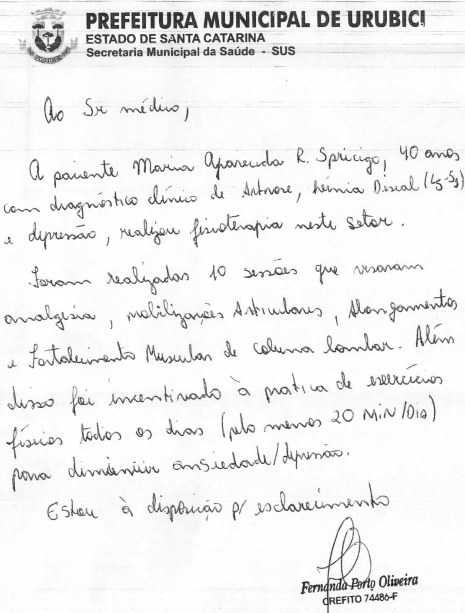 PREFEITURA MUNICIPAL DE URUBICI
ESTADO DE SANTA CATARINA
Secretaria Municipal da Saúde - SUS
Ao Sr médico,
A paciente Marina Aparecida R. Spricigo, 40 anos
com diagnóstico clínico de Artrose, hérnia Discal (L5-S1)
e depressão, realizou fisioterapia neste setor.
Foram realizadas 10 sessões que visaram
analgesia, mobilizações Articulares, Alongamentos
e Fortalecimento Muscular de coluna lombar. Além
disso foi incentivado à pratica de exercícios
físicos todos os dias (pelo menos 20 MIN/DIA)
para diminuir ansiedade/depressão.
Estou à disposição p/ esclarecimento
Fernanda Porto Oliveira
CREFITO 74486-F